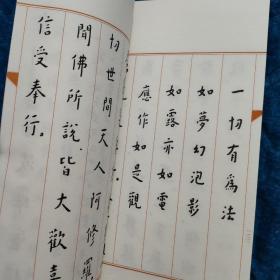 一切有為法
如夢幻泡影
如露亦如電
應作如是觀
切世間天人阿修羅
聞佛所說皆大歡喜
信受奉行。